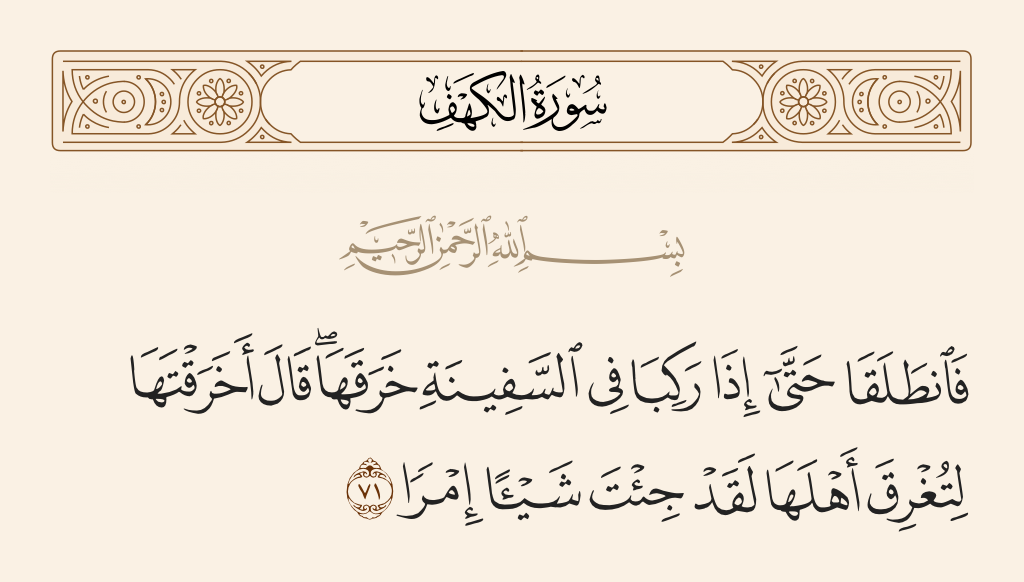 سُورَةُ الكَهۡفِ
بِسۡمِ ٱللَّهِ ٱلرَّحۡمَٰنِ ٱلرَّحِيمِ
فَٱنطَلَقَا حَتَّىٰٓ إِذَا رَكِبَا فِي ٱلسَّفِينَةِ خَرَقَهَاۖ قَالَ أَخَرَقۡتَهَا
لِتُغۡرِقَ أَهۡلَهَا لَقَدۡ جِئۡتَ شَيۡـًٔا إِمۡرٗا ٧١